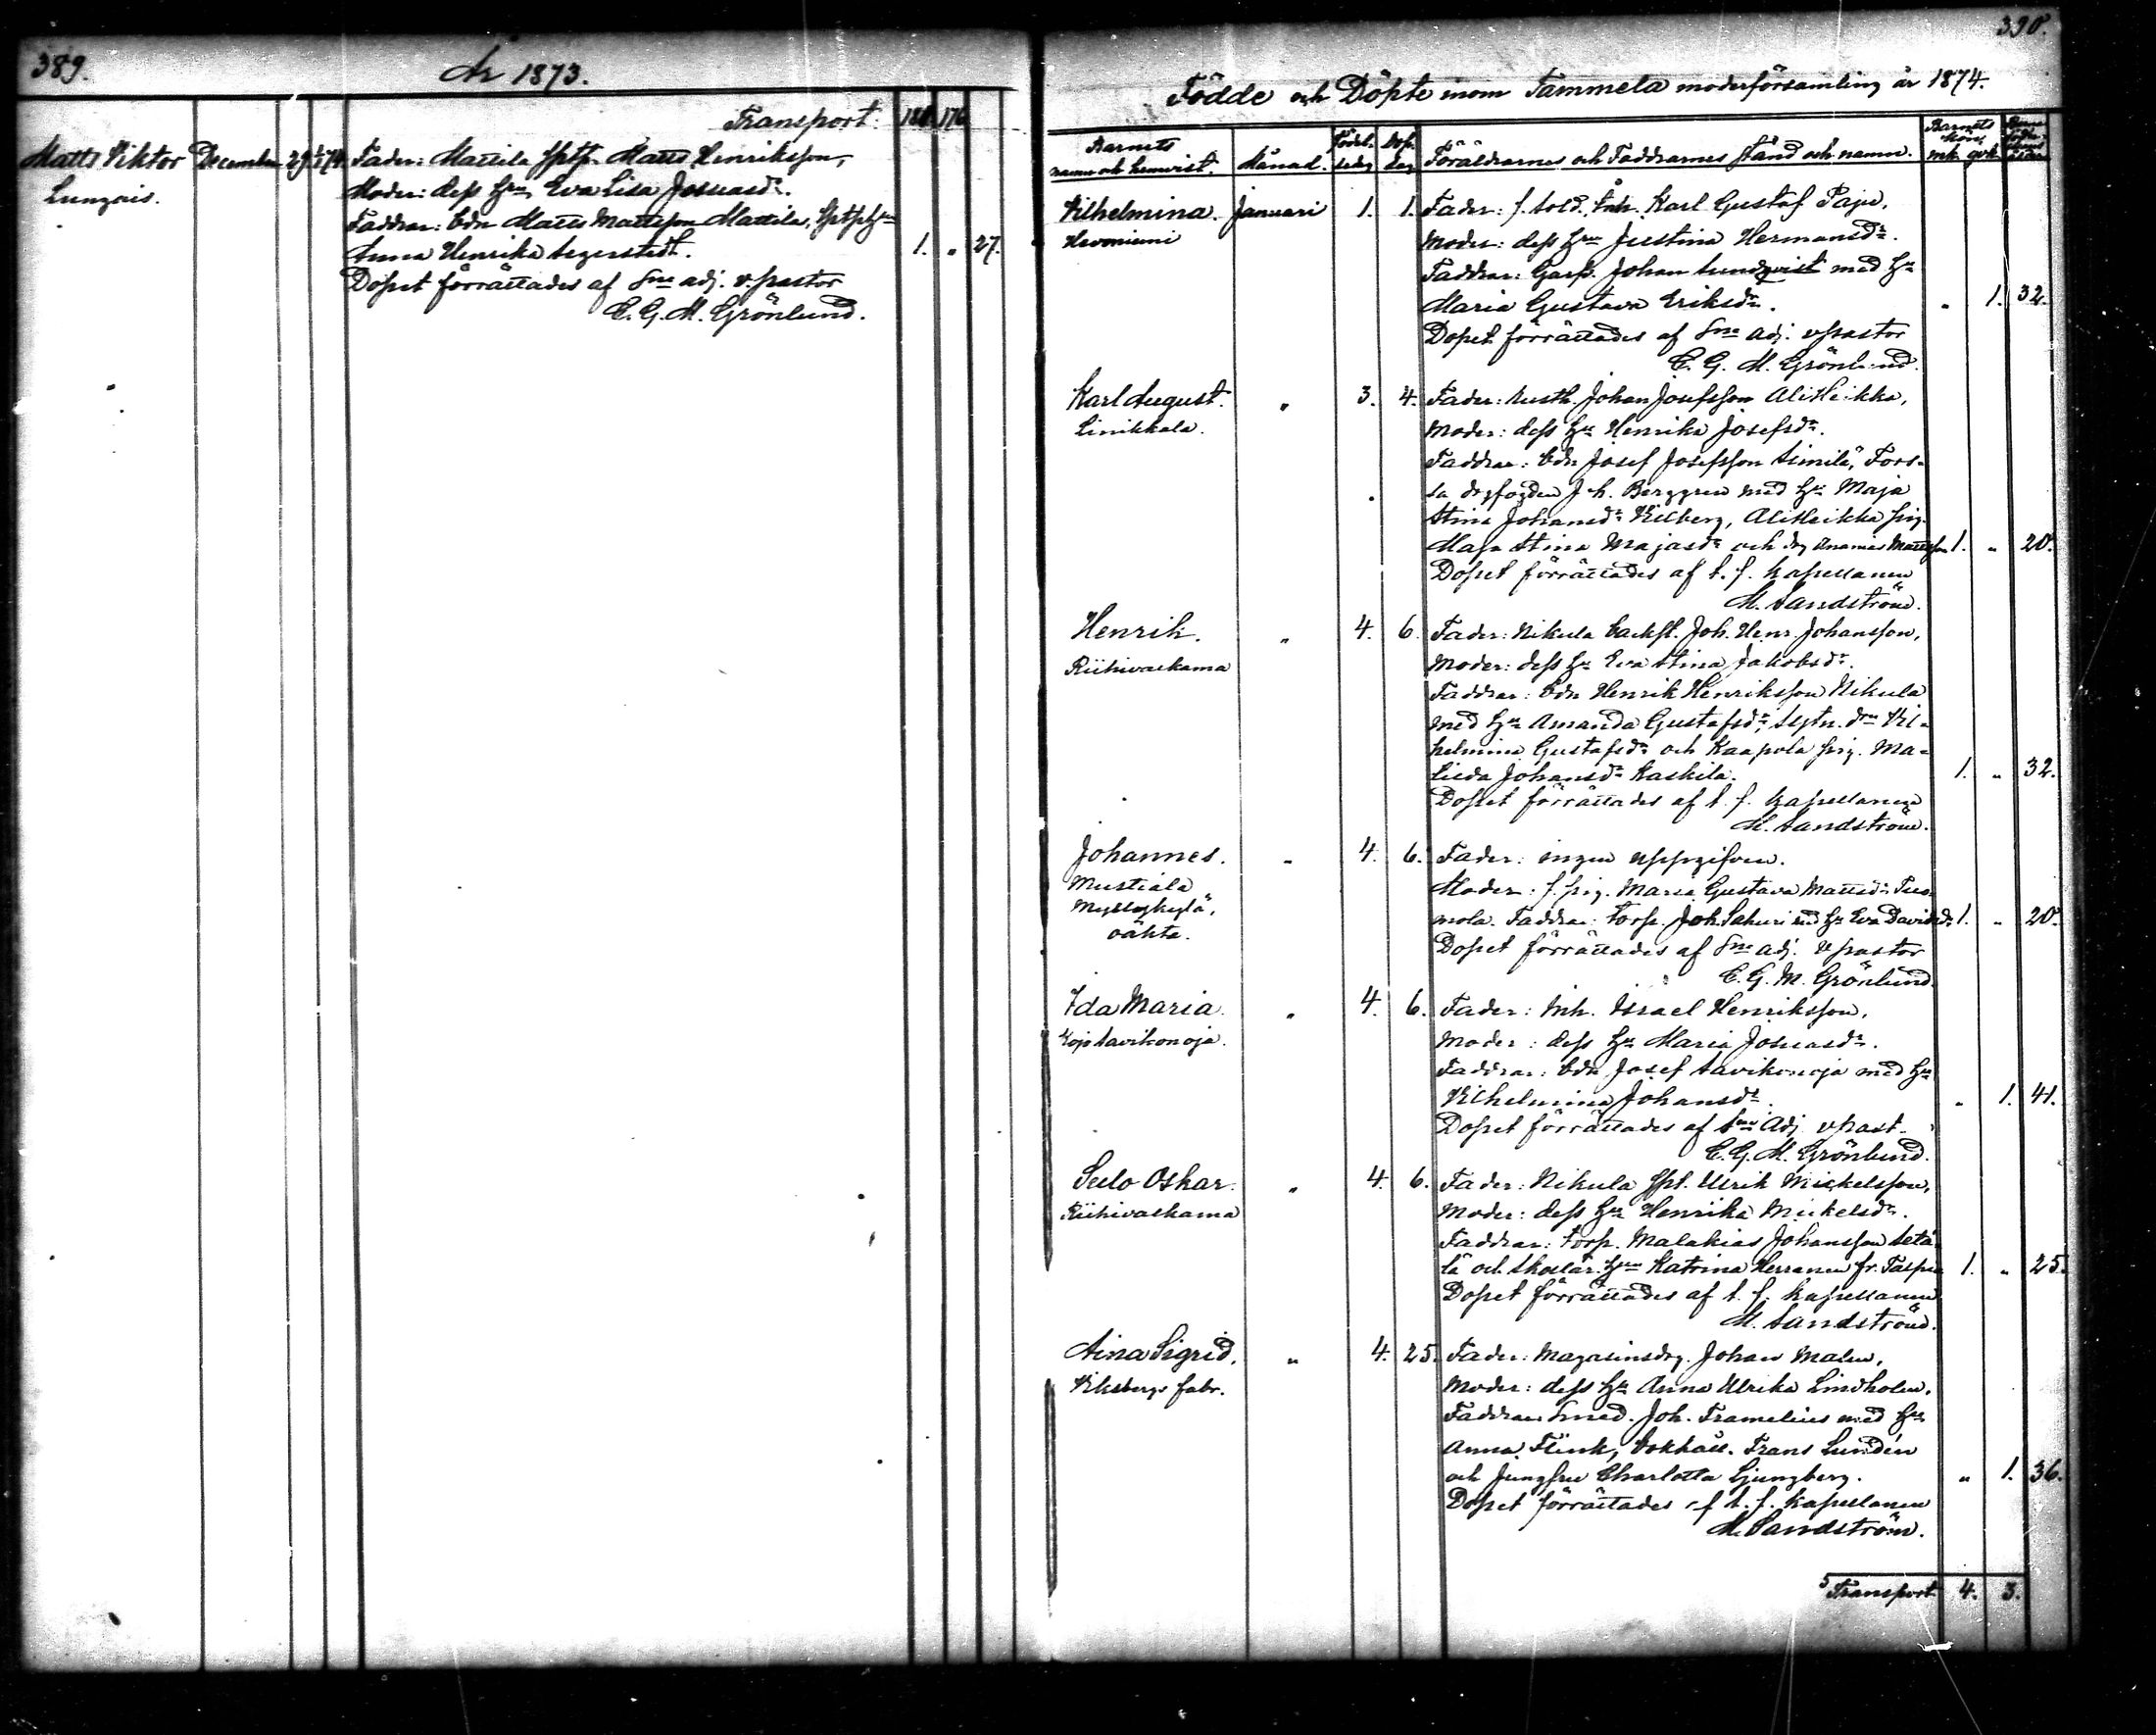 389.
År 1873.
Transport. 176
Matts Viktor December 29 1/1 74. Fader: Mattila Matts Henriksson,
Lunzais. Moder: dess Hru Eva Lisa Josuasdr.
Faddrar: bdn Matts Mattsson Mattila,
Anna Henrika Segerstedt. 1. " 27.
Dopet förrättades af Sne adj. v. pastor
E. G. M. Grönlund.
390.
Födde och Döpte inom Tammela moderförsamling år 1874.
Barnets namn och hemvist. Månad. Föd. dag Döp. dag Föräldrarnes och Faddrarnes stånd och namn. Barnets kön, mk. qvk.
Vilhelmina. Januari 1. 1. Fader: f. sold. Inh. Karl Gustaf Paju,
Hevoniemi Moder: dess Hru Justina Hermansdr.
Faddrar: Garf. Johan Sundqvist med Hu
Maria Gustava Eriksdr. " 1. 32.
Dopet förrättades af Sne adj. vpastor
E. G. M. Grönlund.
Karl August. " 3. 4. Fader: Rusth. Johan Josefsson AliHeikka,
Linikkala. Moder: dess Hu Henrika Josefsdr.
Faddrar: bdn Josef Josefsson Simila, Fors-
sa drgfogden J. h. Berggren med Hu Maja
Stina Johansdr Vilberg, AliHeikka pig.
Maja Stina Majasdr och drg Ananias Mattsson 1. " 20.
Dopet förrättades af t. f. kapellanen
M. Sandström.
Henrik. " 4. 6. Fader: Nikula backst. Joh. Henr. Johansson,
Riihivalkama Moder: dess Hu Eva Stina Jakobsdr.
Faddrar: bdn Henrik Henriksson Nikula
med Hu Amanda Gustafsdr, sytn. drn Vil-
helmina Gustafsdr och Kaapola pig. Ma-
tilda Johansdr Kaskila. 1. " 32.
Dopet förrättades af t. f. kapellanen
M. Sandström.
Johannes. " 4. 6. Fader: ingen uppgifven.
Mustiala Moder: f. pig. Maria Gustava Mattsdr Tuo-
Myllykylä, mola. Faddrar: torp. Joh. Sahuri med Hu Eva Davidsdr 1. " 20.
oähta. Dopet förrättades af Sne adj. vpastor
E. G. M. Grönlund.
Ida Maria. " 4. 6. Fader: Inh. Israel Henriksson,
Kojo Savikonoja. Moder: dess Hu Maria Josuasdr.
Faddrar: bdn Josef Savikonoja med Hu
Vilhelmina Johansdr. " 1. 41.
Dopet förrättades af Sne Adj. vpast.
E. G. M. Grönlund.
Sulo Oskar. " 4. 6. Fader: Nikula Ulrik Mickelsson,
Riihivalkama Moder: dess Hu Henrika Mickelsdr.
Faddrar: torp. Malakias Johansson Setä-
lä och skollär. Hru Katrina Herranen fr. 1. " 25.
Dopet förrättades af t. f. kapellanen
M. Sandström.
Aina Sigrid. " 4. 25. Fader: Magasinsdrg. Johan Malen,
Viksbergs fabr. Moder: dess Hu Anna Ulrika Lindholm.
Faddrar: Smed. Joh. Tramelius med Hu
Anna Flink, bokhåll. Frans Lundén
och jungfru Charlotta Ljungberg. " 1. 36.
Dopet förrättades af t. f. kapellanen
M. Sandström.
Transport 4. 3.